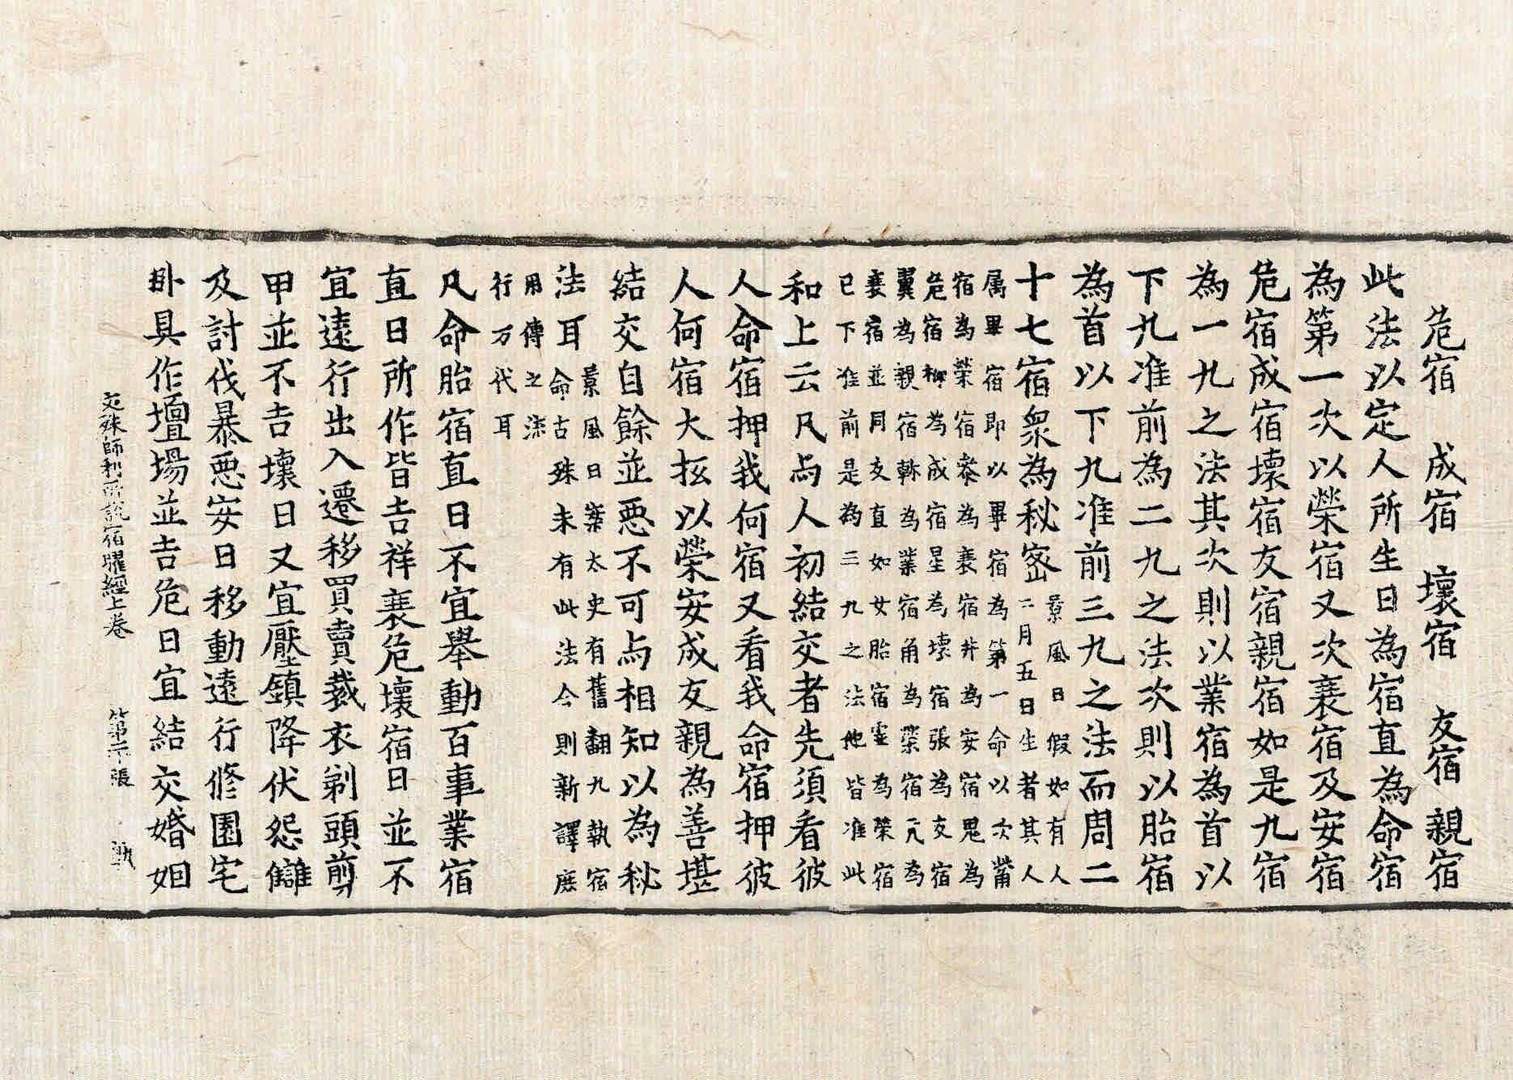 危宿 成宿 壞宿 友宿 親宿
此法以定人所生日為宿直為命宿
為第一次以榮宿又次衰宿及安宿
危宿成宿壞宿友宿親宿如是九宿
為一九之法其次則以業宿為首以
下九准前為二九之法次則以胎宿
為首以下九准前三九之法而周二
十七宿衆為秘宻
景風日假如有人
二月五日生者其人
属畢宿即以畢宿為第一命以次觜
宿為榮宿叅為衰宿井為安宿鬼為
危宿柳為成宿星為壞宿張為友宿
翼為親宿軫為業宿角為榮宿亢為
衰宿並同友直如女胎宿虛為榮宿
已下准前是為三九之法他皆准此
和上云凡与人初結交者先須看彼
人命宿押我何宿又看我命宿押彼
人何宿大抵以榮安成友親為善堪
結交自餘並惡不可与相知以為秘
法耳
景風日案太史有舊翻九執宿
命古殊未有此法今則新譯庶
用傳之流
行万代耳
凡命胎宿直日不宜舉動百事業宿
直日所作皆吉祥衰危壞宿日並不
宜遠行出入遷移買賣裁衣剃頭剪
甲並不吉壞日又宜壓鎮降伏怨讎
及討伐暴惡安日移動遠行修園宅
卧具作壇場並吉危日宜結交婚姻
文殊師利所說宿曜經上卷 第二十張